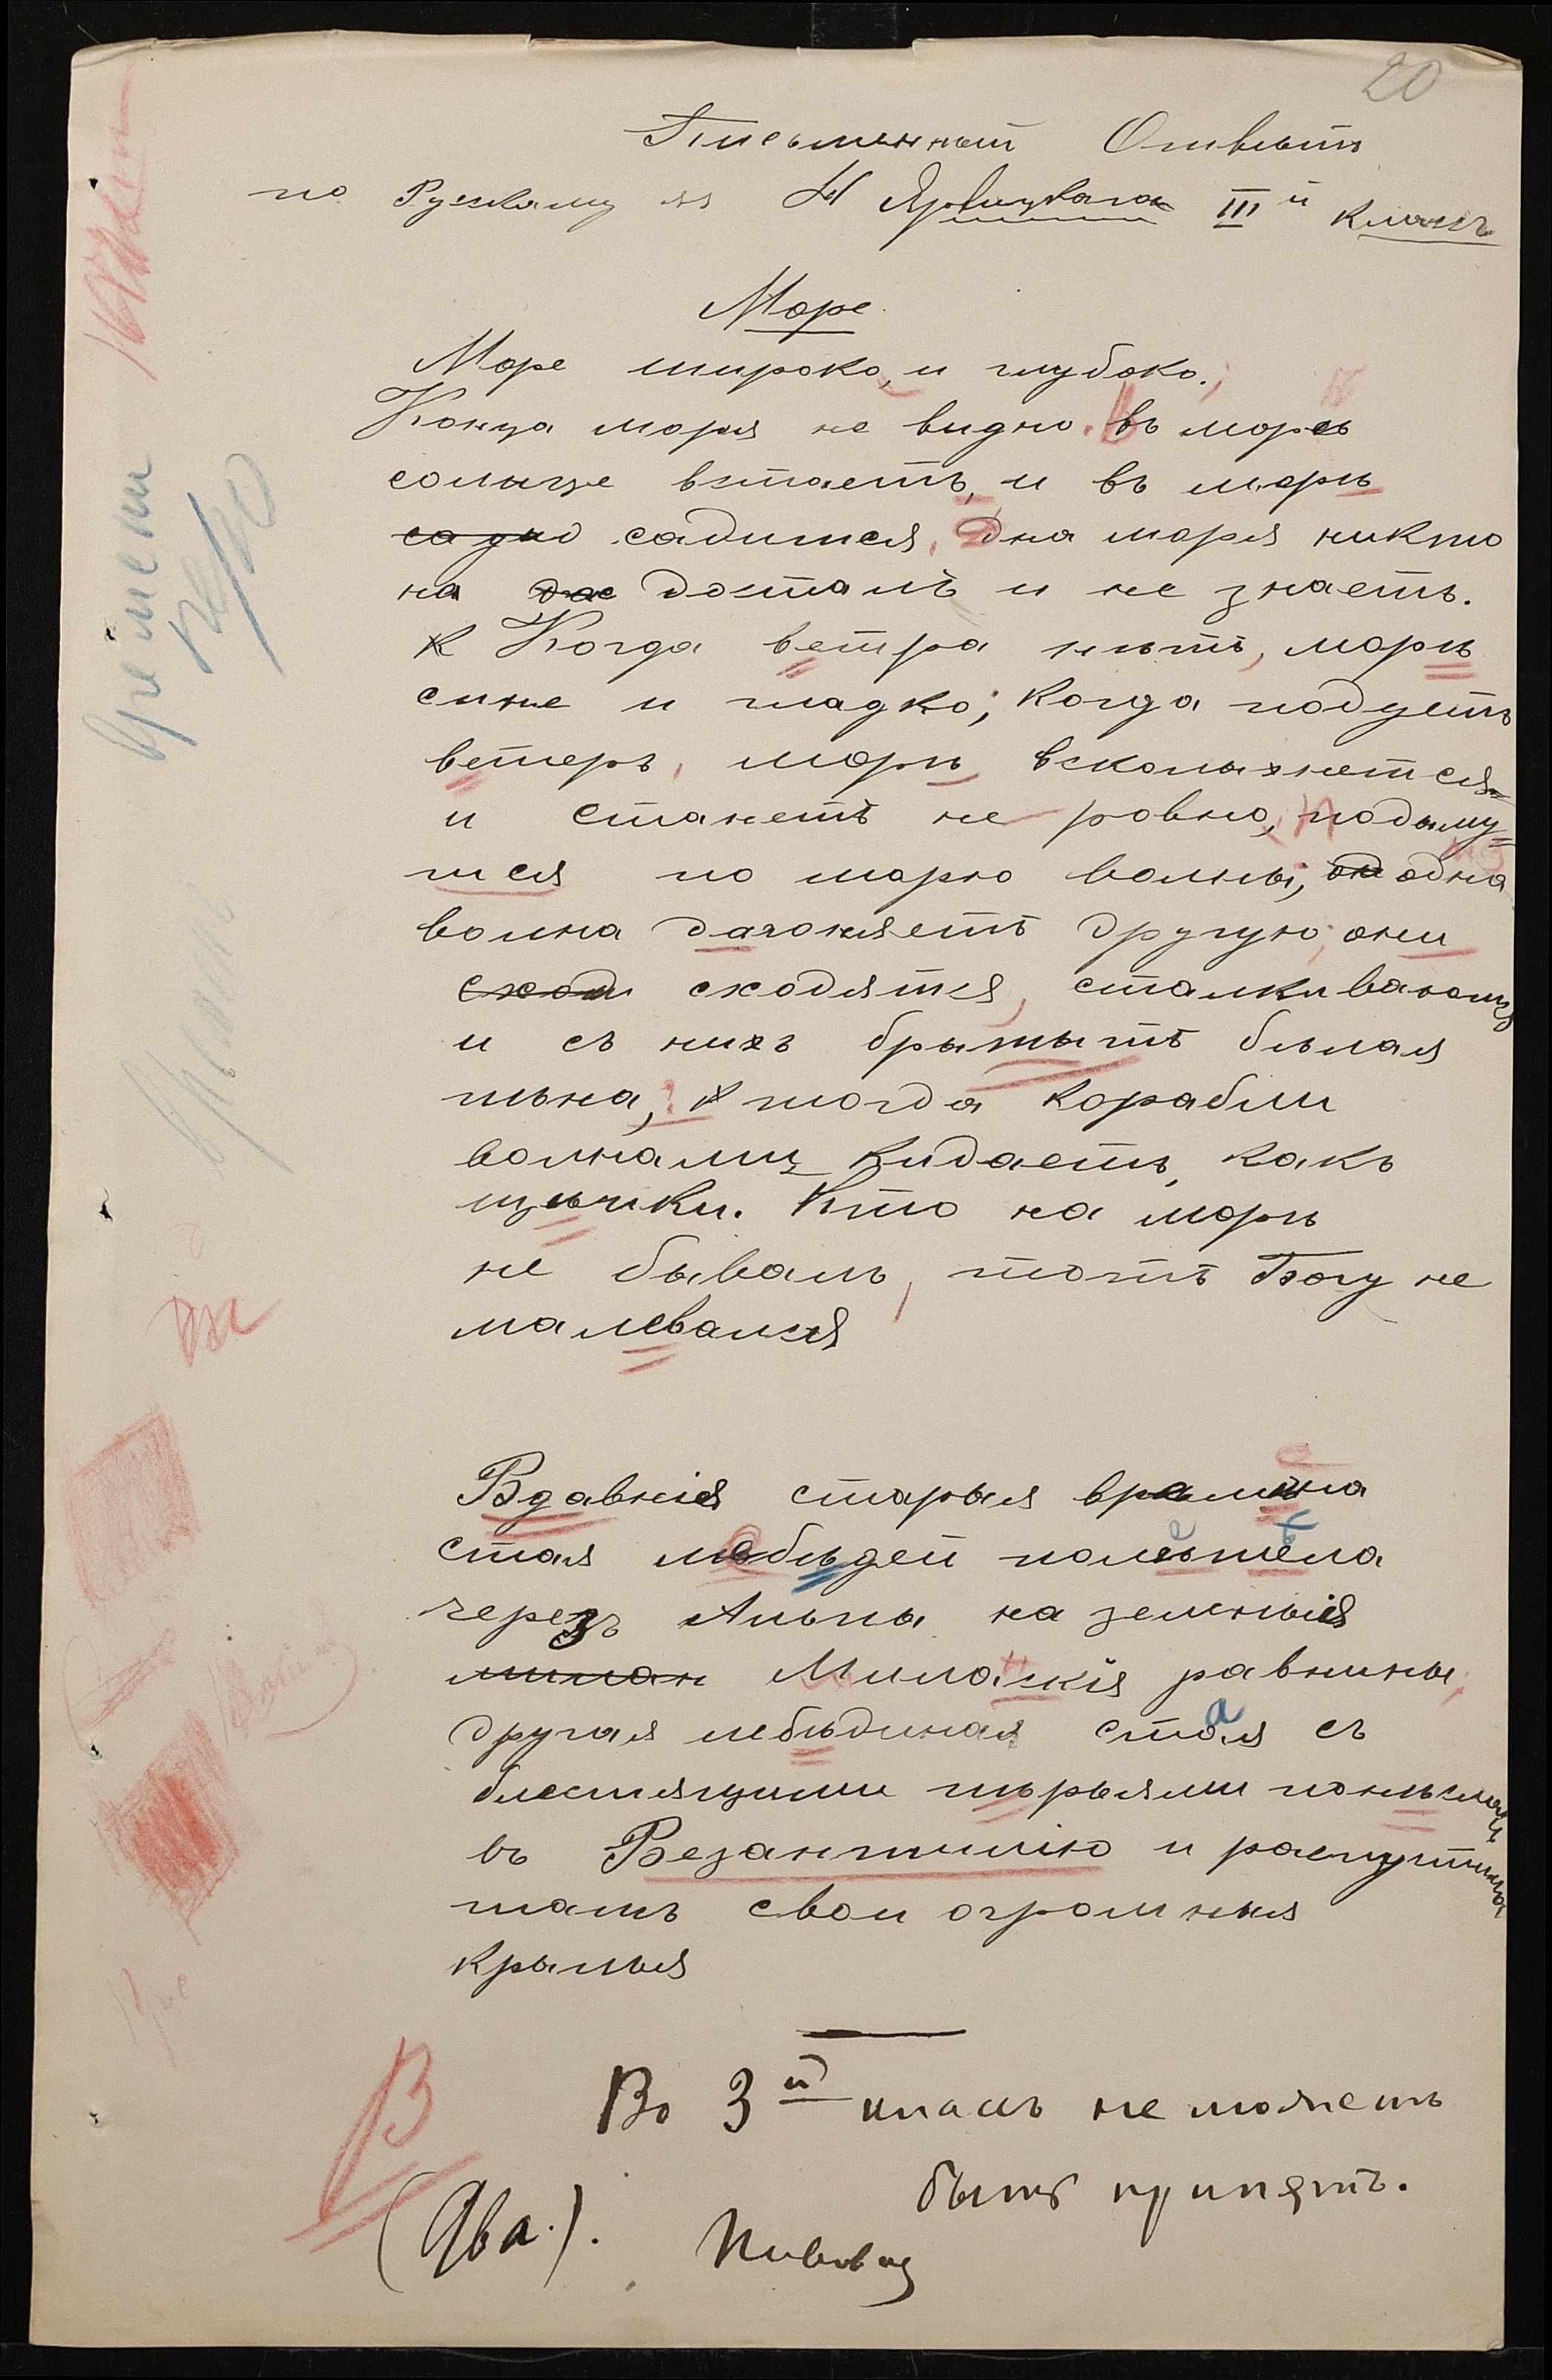 20
Письменный Отвѣтъ
по Рускаму яз Н III й класъ
Море
Море широко, и глубоко.
Конца моря не видно. въ морѣ
солнце встаетъ, и въ морѣ
садится, Дна моря никто
на досталъ и не знаетъ.
К Когда ветра нѣтъ, морѣ
сине и гладко; когда подуетъ
ветеръ, морѣ всколыхнется
и станетъ не ровно, подыму=
тся по морю волны, одна
волна дагоняетъ другую; они
сходятся, сталкиваются
и съ нихъ брыжытъ бѣлая
пѣна, тогда корабли
волнами кидаетъ, какъ
щѣпки. Кто на морѣ
не бывалъ, тотъ Богу не
малевался
Вдавнія старыя времина
стая лебѣдей полѣтела
черезъ Альпы на зеленыя
Миланскія равнины,
другая лебѣдиная стая съ
блестящими пѣрьями понѣслась
въ Везантилію и распустила
тамъ свои огромныя
крылья
Во 3й класъ не можетъ
быть принятъ.
(Два.).